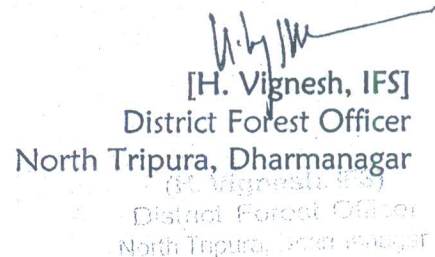 [H. Vignesh, IFS]
District Forest Officer
North Tripura, Dharmanagar
(H. Vignesh, IFS)
District Forest Officer
North Tripura,